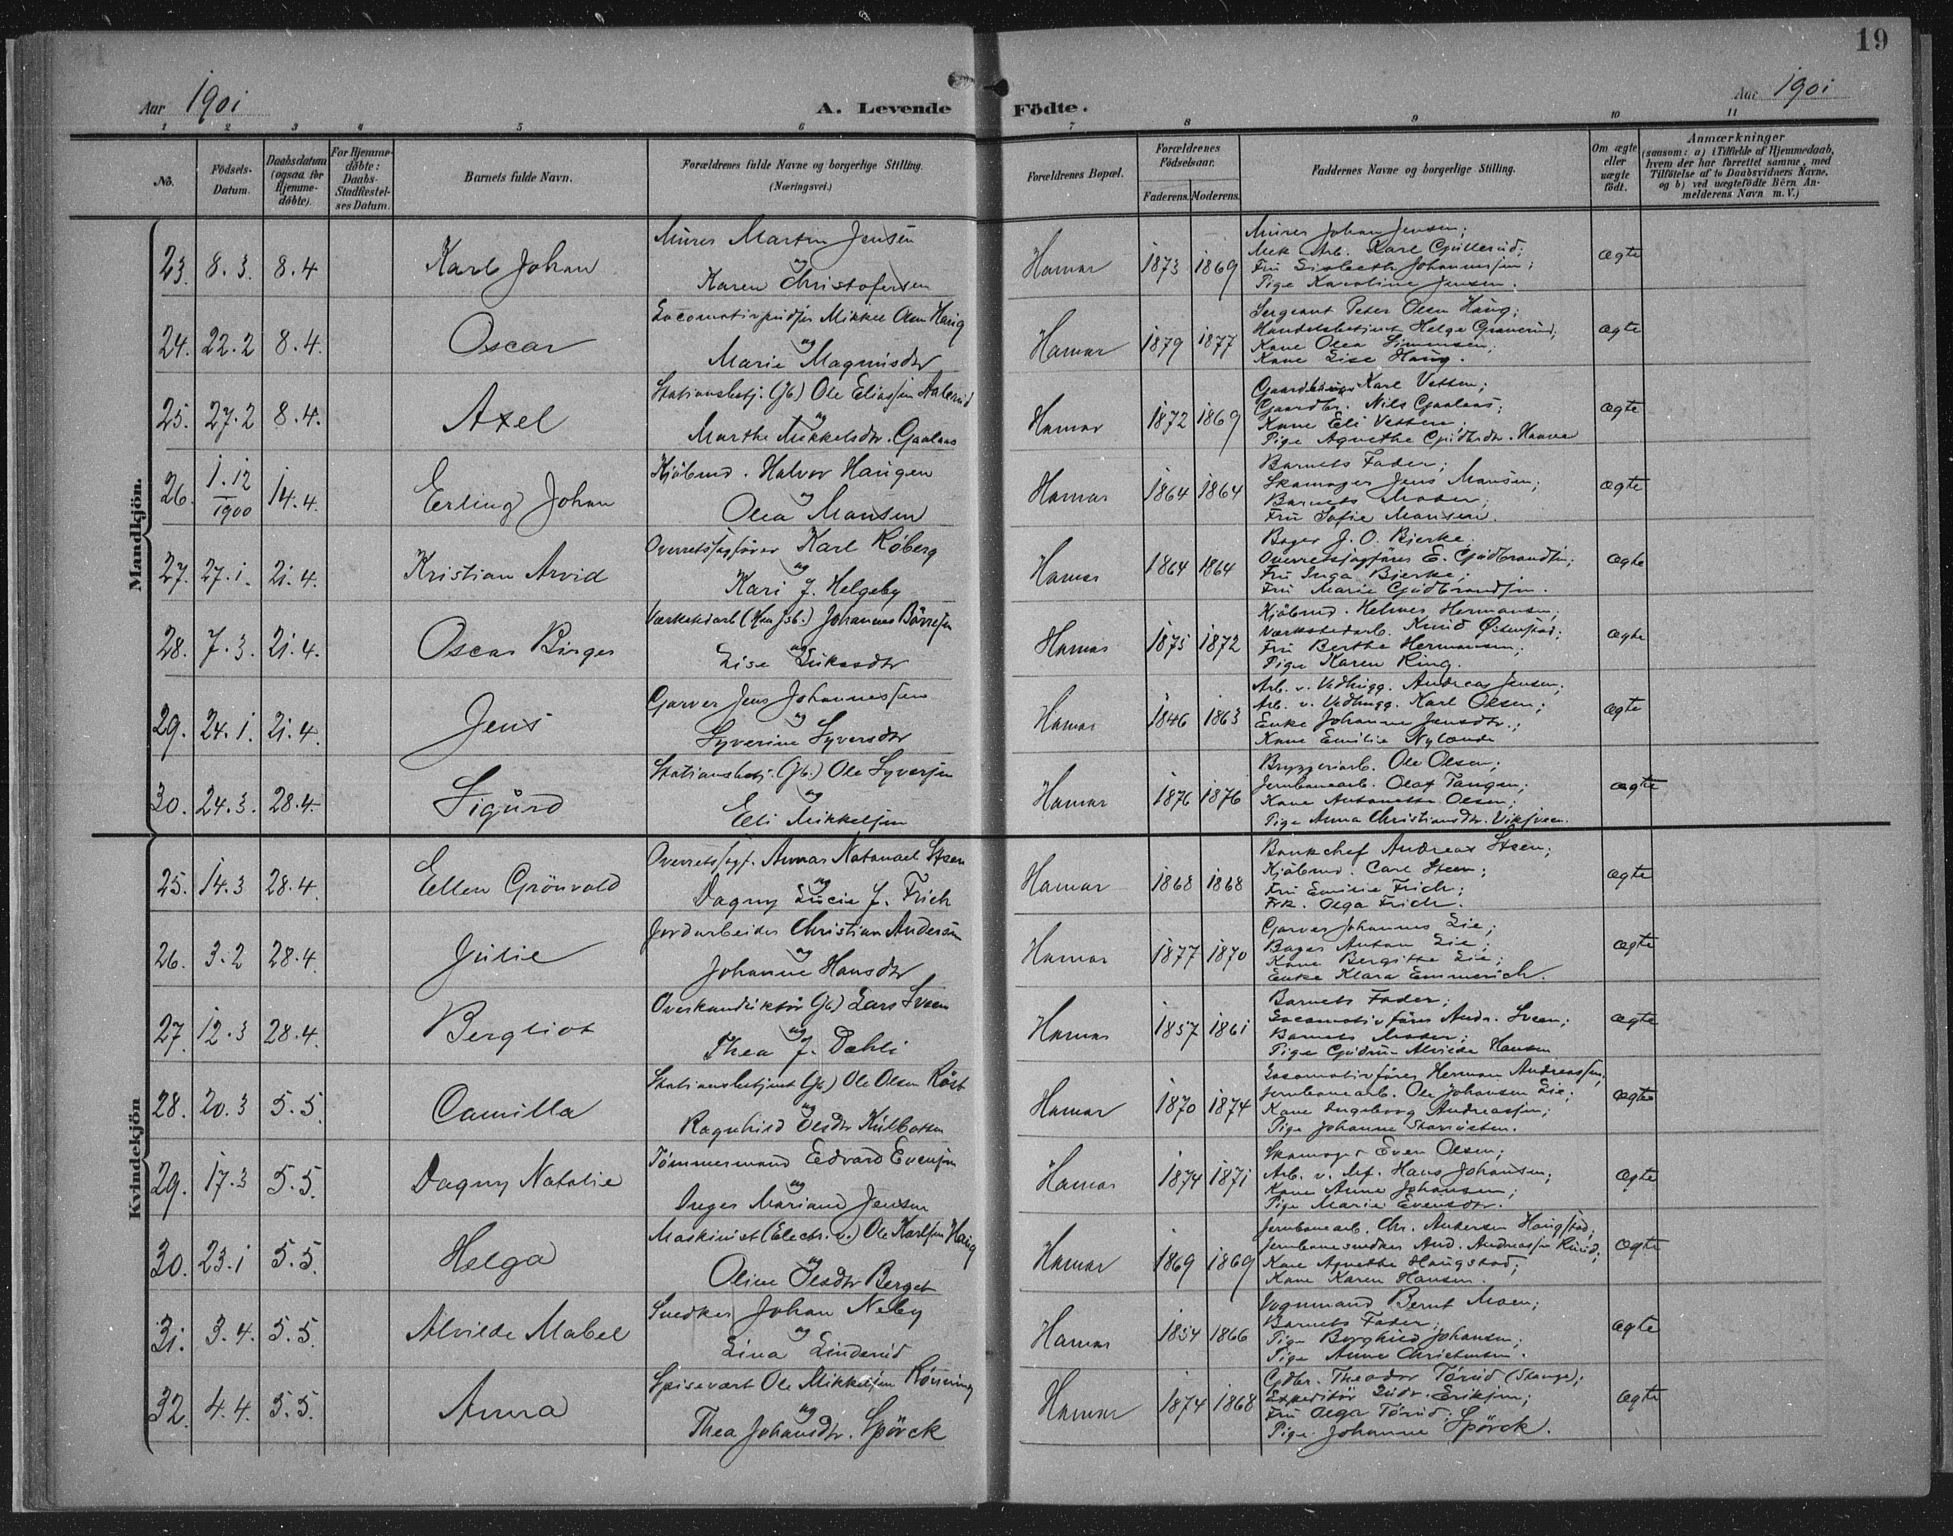 19
Aar 1901
A. Levende Födte.
Aar 1901
1 2 3 4 5 6 7 8 9 10 11
No.
Födsels-Datum.
Daabsdatum (ogsaa for Hjemme-döbte).
For Hjemme-döbte: Daabs-Stadfæstel-ses Datum.
Barnets fulde Navn.
Forældrenes fulde Navne og borgerlige Stilling. (Næringsvei.)
Forældrenes Bopæl.
Forældrenes Födselsaar.
Faderens. Moderens.
Faddernes Navne og borgerlige Stilling.
Om ægte eller uægte födt.
Anmærkninger
(saasom: a) i Tilfælde af Hjemmedaab, hvem der har forrettet samme, med Tilföielse af to Daabsvidners Navne, og b) ved uægtefödte Börn An-melderens Navn m. V.)
Mandkjön.
23. 8.3. 8.4 Karl Johan
Murer Marten Jensen
og
Karen Christofersen
Hamar 1873 1869
Murer Johan Jensen;
Mek. Arb. Karl Gullerud;
Fru Lisbeth Johannesen;
Pige Karoline Jensen.
ægte
24. 22.2 8.4. Oscar
Locomotivpudser Mikkel Olsen Haug
og
Marie Magnusdtr
Hamar 1879 1877
Sergeant Peter Olsen Haug;
Handelsbetjent Helge Graverud;
Kone Olea Simensen;
Kone Lise Haug.
ægte
25. 27.2 8.4. Axel
Stationsbetj. (Jb.) Ole Eliassen Aalerud
og
Marthe Mikkelsdtr. Gaalaas
Hamar 1872 1869
Gaardbruger Karl Vetten;
Gaardbr. Nils Gaalaas;
Kone Eli Vetten;
Pige Agnethe Gudbrdtr.
ægte
26. 1.12 1900 14.4. Erling Johan
Kjöbmd. Halvor Haugen
og
Olea Mausen
Hamar 1864 1864
Barnets Fader;
Skomager Jens Mausen;
Barnets Moder;
Fru Sofie Mausen.
ægte
27. 27.1. 21.4. Kristian Arvid
Overretssagförer Karl Röberg
og
Kari J. Helgeby
Hamar 1864 1864
Bager J. O. Bjerke;
Overretssagförer E. Gudbrandsen;
Fru Inga Bjerke;
Fru Marie Gudbrandsen.
ægte
28. 7.3. 21.4. Oscar Birger
Værkstedarb. Johannes Börresen
og
Lise Lukasdtr
Hamar 1875 1872
Kjöbmd. Helmer Hermansen;
Værkstedarb. Knud Østenstad;
Fru Berthe Hermansen;
Pige Karen Ring.
ægte
29. 24.1. 21.4. Jens
Garver Jens Johannessen
og
Syverine Syversdtr
Hamar 1846 1863
Arb. v. Vedhugg. Andreas Jensen;
Arb. v. Vedhugg. Karl Olsen;
Enke Johanne Jensdtr.;
Kone Emilie Nylande
ægte
30. 24.3. 28.4. Sigurd
Stationsbetj. (Jb.) Ole Syversen
og
Eli Mikkelsen
Hamar 1876 1876
Bryggeriarb. Ole Olsen;
Jernbanearb. Olaf Tangen;
Kone Antonette Olsen;
Pige Anna Christiansdtr. Viksveen.
ægte
Kvindekjön
25. 14.3 28.4. Ellen Grönvold
Overretssagf. Annar Natanael Steen
og
Dagny Lucie J. Frich
Hamar 1868 1868
Bankchef Andreas Steen;
Kjöbmd. Carl Steen;
Fru Emilie Frich;
Frk. Olga Frich.
ægte
26. 3.2 28.4. Julie
Jordarbeider Christian Andersen
og
Johanne Hansdtr
Hamar 1877 1870
Garver Johannes Lie;
Bager Anton Lie;
Kone Bergitte Lie;
Enke Klara Emmerich.
ægte
27. 12.3 28.4. Bergliot
Overkonduktör (Jb) Lars Sveen
og
Thea J. Dahli
Hamar 1857 1861
Barnets Fader;
Locomotivförer Andr. Sveen;
Barnets Moder;
Pige Gudrun Alvilde Hansen
ægte
28. 20.3 5.5. Camilla
Stationsbetjent (Jb) Ole Olsen Röst
og
Ragnhild Olsdtr Kulbotten
Hamar 1870 1874
Locomotivförer Herman Andreassen;
Jernbanearb. Ole Johansen Lie;
Kone Ingeborg Andreassen;
Pige Johanne
ægte
29. 17.3 5.5. Dagny Natalie
Tömmermand Edvard Evensen
og
Inger Mariane Jensen
Hamar 1874 1871
Skomager Even Olsen;
Arb. v. Hans Johansen;
Kone Anne Johansen;
Pige Marie Evensdtr.
ægte
30. 23.1 5.5. Helga
Maskinist (Electr. v.) Ole Karlsen Haug
og
Oline Olsdtr Berget
Hamar 1869 1869
Jernbanearb. Chr. Andersen Haugstad;
Jernbanesnedker And. Andreassen Ruud;
Kone Agnethe Haugstad;
Kone Karen Hansen.
ægte
31. 3.4. 5.5. Alvilde Mabel
Snedker Johan Neby
og
Lina Linderud
Hamar 1854 1866
Vognmand Bernt Moen;
Barnets Fader;
Pige Borghild Johansen;
Pige Anne Christensen.
ægte
32. 4.4. 5.5. Anna
Spisevært Ole Mikkelsen Rönning
og
Thea Johansdtr. Spörck
Hamar 1874 1868
Gdbr. Theodor Törud (Stange);
Expeditör Ludv. Eriksen;
Fru Olga Törud;
Pige Johanne Spörck.
ægte